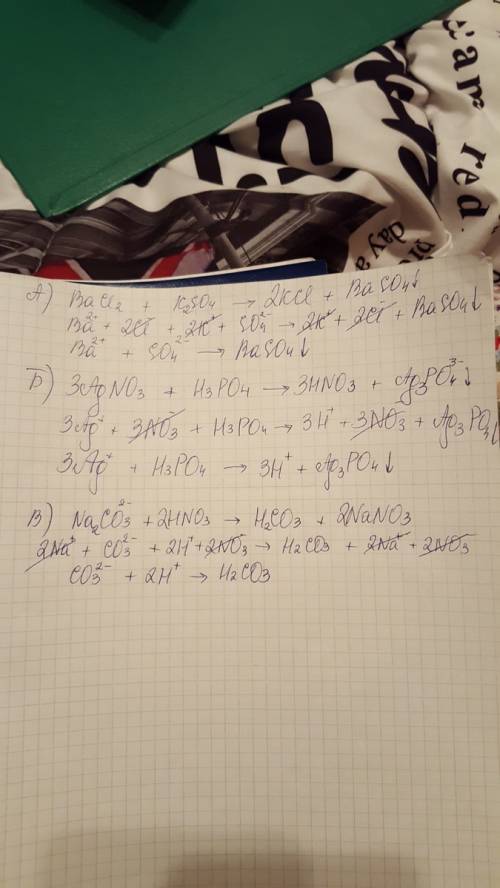 car
red
day a
А) BaCl₂ + K₂SO₄ → 2KCl + BaSO₄↓
Ba²⁺ + 2Cl⁻ + 2K⁺ + SO₄²⁻ → 2K⁺ + 2Cl⁻ + BaSO₄↓
Ba²⁺ + SO₄²⁻ → BaSO₄↓
Б) 3AgNO₃ + H₃PO₄ → 3HNO₃ + Ag₃PO₄³⁻↓
3Ag⁺ + 3NO₃⁻ + H₃PO₄ → 3H⁺ + 3NO₃⁻ + Ag₃PO₄↓
3Ag⁺ + H₃PO₄ → 3H⁺ + Ag₃PO₄↓
В) Na₂CO₃²⁻ + 2HNO₃ → H₂CO₃ + 2NaNO₃
2Na⁺ + CO₃²⁻ + 2H⁺ + 2NO₃⁻ → H₂CO₃ + 2Na⁺ + 2NO₃⁻
CO₃²⁻ + 2H⁺ → H₂CO₃